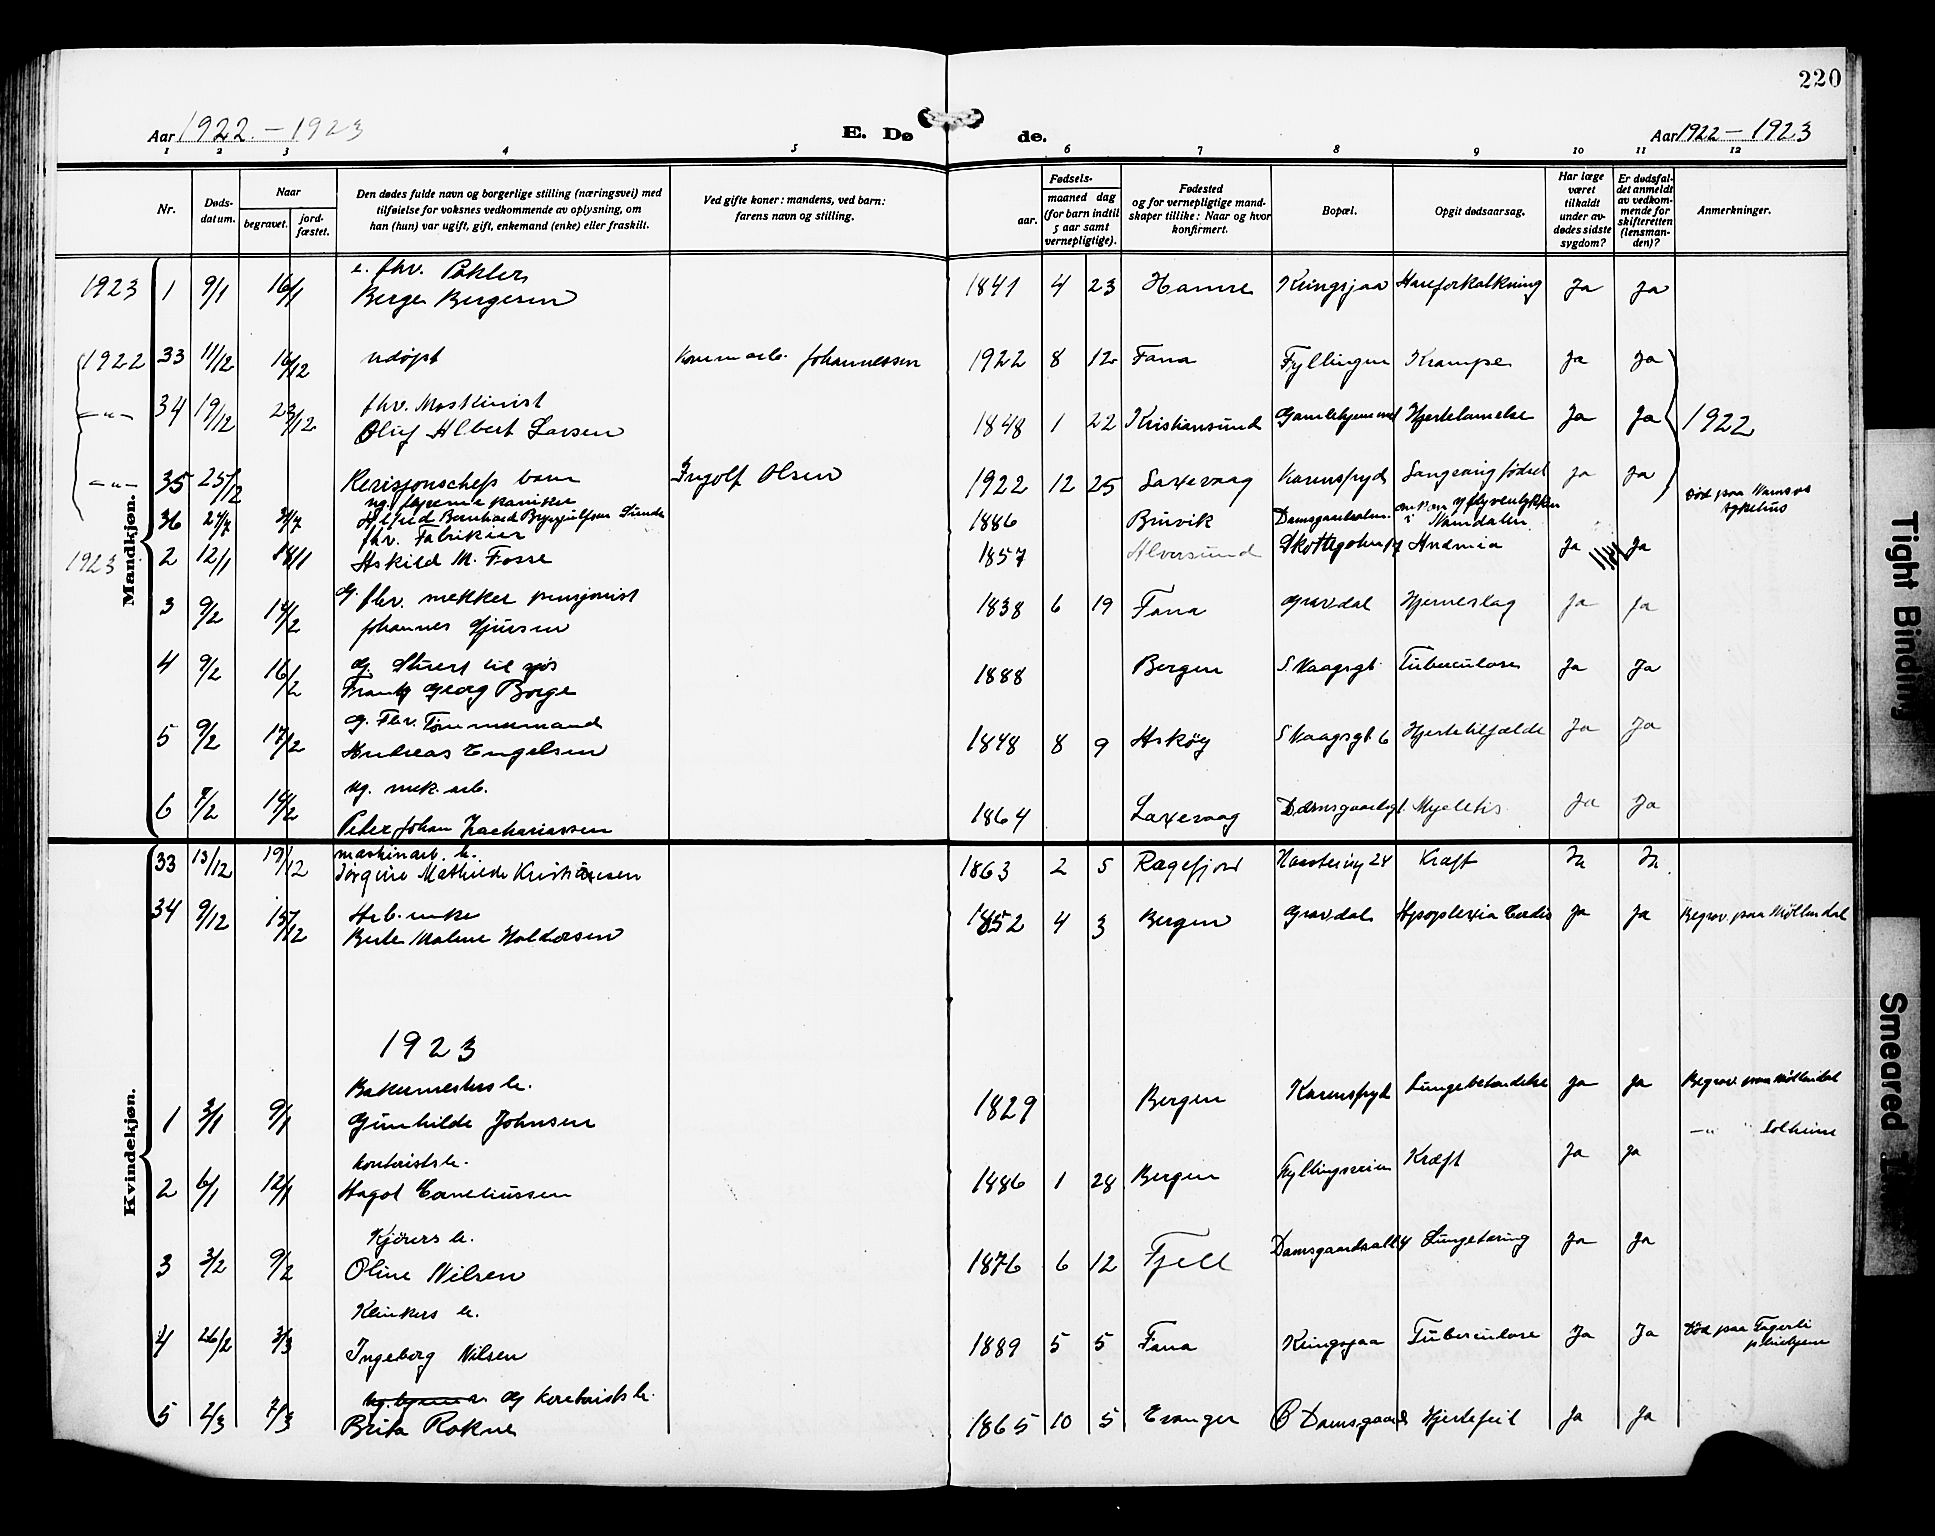 220
Aar 1922 - 1923
E. Døde.
Aar 1922 - 1923
1 2 3 4 5 6 7 8 9 10 11 12
Nr.
Døds-
datum.
Naar
begravet.
jord-
fæstet.
Den dødes fulde navn og borgerlige stilling (næringsvei) med
tilføielse for voksnes vedkommende av oplysning, om
han (hun) var ugift, gift, enkemand (enke) eller fraskilt.
Ved gifte koner: mandens, ved barn:
farens navn og stilling.
Fødsels-
aar.
maaned dag
(for barn indtil
5 aar samt
vernepligtige).
Fødested
og for vernepligtige mand-
skaper tillike: Naar og hvor
konfirmert.
Bopæl.
Opgit dødsaarsag.
Har læge
været
tilkaldt
under av-
dødes sidste
sygdom?
Er dødsfal-
det anmeldt
av vedkom-
mende for
skifteretten
(lensman-
den)?
Anmerkninger.
Mandkjøn.
e. fhv.
1923 1 9/1 16/1 Berge Bergesen 1841 4 23 Hamre Kringsjaa Aareforkalkning Ja Ja
1922 33 11/12 16/12 udøpt Kommarb. Johannessen 1922 8 12 Fana Fyllingen Krampe Ja Ja
fhv. Maskinist
-"- 34 19/12 23/12 Oluf Albert Larsen 1848 1 22 Kristiansund Hjertelamelse Ja Ja 1922
-"- 35 25/12 Revisjonschefs barn Ingolf Olsen 1922 12 25 Laxevaag Karensfryd Langvarig fødsel Ja Ja
36 24/7 31/7 Alfred Bernhard Brynjulfsen Sunde 1886 Bruvik Damsgaardsalm. Namdalen Død paa Namsos
sykehus
fhv. Fabrikeier
1923 2 12/1 18/1 Askild M. Fosse 1857 Alversund Anæmia Ja Ja
g. fhv. mekker pensjonist
3 9/2 14/2 Johannes Gjertsen 1838 6 19 Fana Gravdal Hjerneslag Ja Ja
g. Stuert til sjøs
4 9/2 16/2 Frantz Georg Borge 1888 Bergen S. Kaagsgt. Tuberculose Ja Ja
g. Fhv. Tømmermand
5 9/2 17/2 Andreas Engelsen 1848 8 9 Askøy S. Kaagsgt 6 Hjertetilfælde Ja Ja
ug. mek. arb.
6 7/2 14/2 Peter Johan Zachariassen 1864 Laxevaag Damsgaardsgt. Myelitis Ja Ja
Kvindekjøn.
maskinarb. h.
33 13/12 19/12 Jørgine Mathilde Kristiansen 1863 2 5 Ragefjord 24 Kræft Ja Ja
Arb. enke
34 9/12 15/12 Berte Malene Haldorsen 1852 4 3 Bergen Gravdal Apoplexia Cordis Ja Ja Begrav. paa Møllendal
1923
Bakermesters h.
1 3/1 9/1 Gunhilde Johnsen 1829 Bergen Karensfryd Lungebetændelse Ja Ja Begrav. paa Møllendal
Kontorists h.
2 6/1 12/1 Hagot Corneliussen 1886 1 28 Bergen Fyllingsveien Kræft Ja Ja -"- " Solheim
Kjørers h.
3 3/2 9/2 Oline Nilsen 1876 6 12 Fjell Damsgaardsallé 4 Lungetæring Ja Ja
Klinkers h.
4 26/2 3/3 Ingeborg Nilsen 1889 5 5 Fana Kringsjaa Tuberculose Ja Ja Død paa Fagerli
pleiehjem
og Kontorists h.
5 2/3 7/3 Brita Rokne 1865 10 5 Evanger Ø Damsgaard Hjertefeil Ja Ja
Tight Binding
Smeared